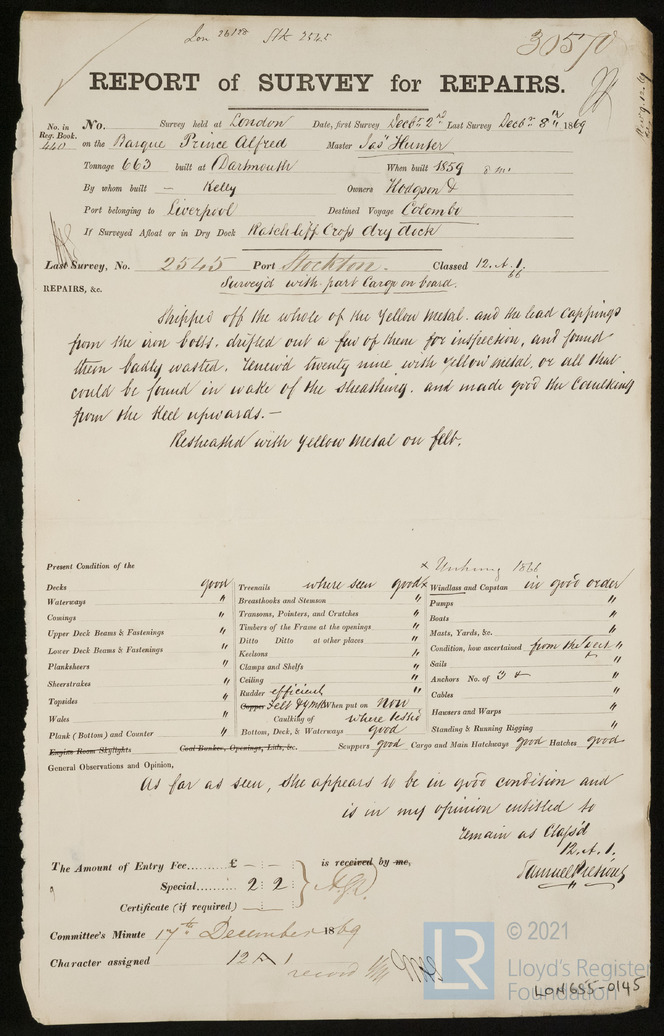 Lon 26120 Stk 2545
30570
REPORT of SURVEY for REPAIRS.
No. in Reg. Book. No. Survey held at London Date, first Survey Decbr 2nd Last Survey Decbr 8th 1869
440 on the Barque Prince Alfred Master Jas Hunter
Tonnage 663 built at Dartmouth When built 1859 8 mo
By whom built — Kelly Owners Hodgson &
Port belonging to Liverpool Destined Voyage Colombo
If Surveyed Afloat or in Dry Dock Ratcliff Cross dry dock
Last Survey, No. 2545 Port Stockton. Classed 12.A.1.
66
REPAIRS, &c. Survey'd with part Cargo on board.
Stripped off the whole of the Yellow Metal and the lead cappings
from the iron bolts. drifted out a few of them for inspection, and found
them badly wasted. renew'd twenty nine with Yellow metal, or all that
could be found in wake of the sheathing. and made good the Caulking
from the Keel upwards.—
Resheathd with Yellow Metal on felt.
Present Condition of the
x Unhung 1866
Decks good
Waterways "
Comings "
Upper Deck Beams & Fastenings "
Lower Deck Beams & Fastenings "
Planksheers "
Sheerstrakes "
Topsides "
Wales "
Plank (Bottom) and Counter "
Engine Room Skylights Coal Bunker, Openings, Lids, &c.
Treenails where seen good
Breasthooks and Stemson "
Transoms, Pointers, and Crutches "
Timbers of the Frame at the openings "
Ditto Ditto at other places "
Keelsons "
Clamps and Shelfs "
Ceiling "
Rudder efficient "
Copper Felt & YM When put on Now
Caulking of where tested
Bottom, Deck, & Waterways good
Scuppers good Cargo and Main Hatchways good Hatches good
x Windlass and Capstan in good order
Pumps "
Boats "
Masts, Yards, &c. "
Condition, how ascertained from the deck "
Sails "
Anchors No. of 3 "
Cables "
Hawsers and Warps "
Standing & Running Rigging "
General Observations and Opinion,
As far as seen, she appears to be in good condition and
is in my opinion entitled to
remain as Class'd
12.A.1.
The Amount of Entry Fee......... £ — : — : is received by me,
Special......... 2 : 2 :
Certificate (if required) — : — :
Samuel Presious
Committee's Minute 17th December 1869
Character assigned 12 A 1
record
© 2021
LR
Lloyd's Register
Foundation
LON655-0145